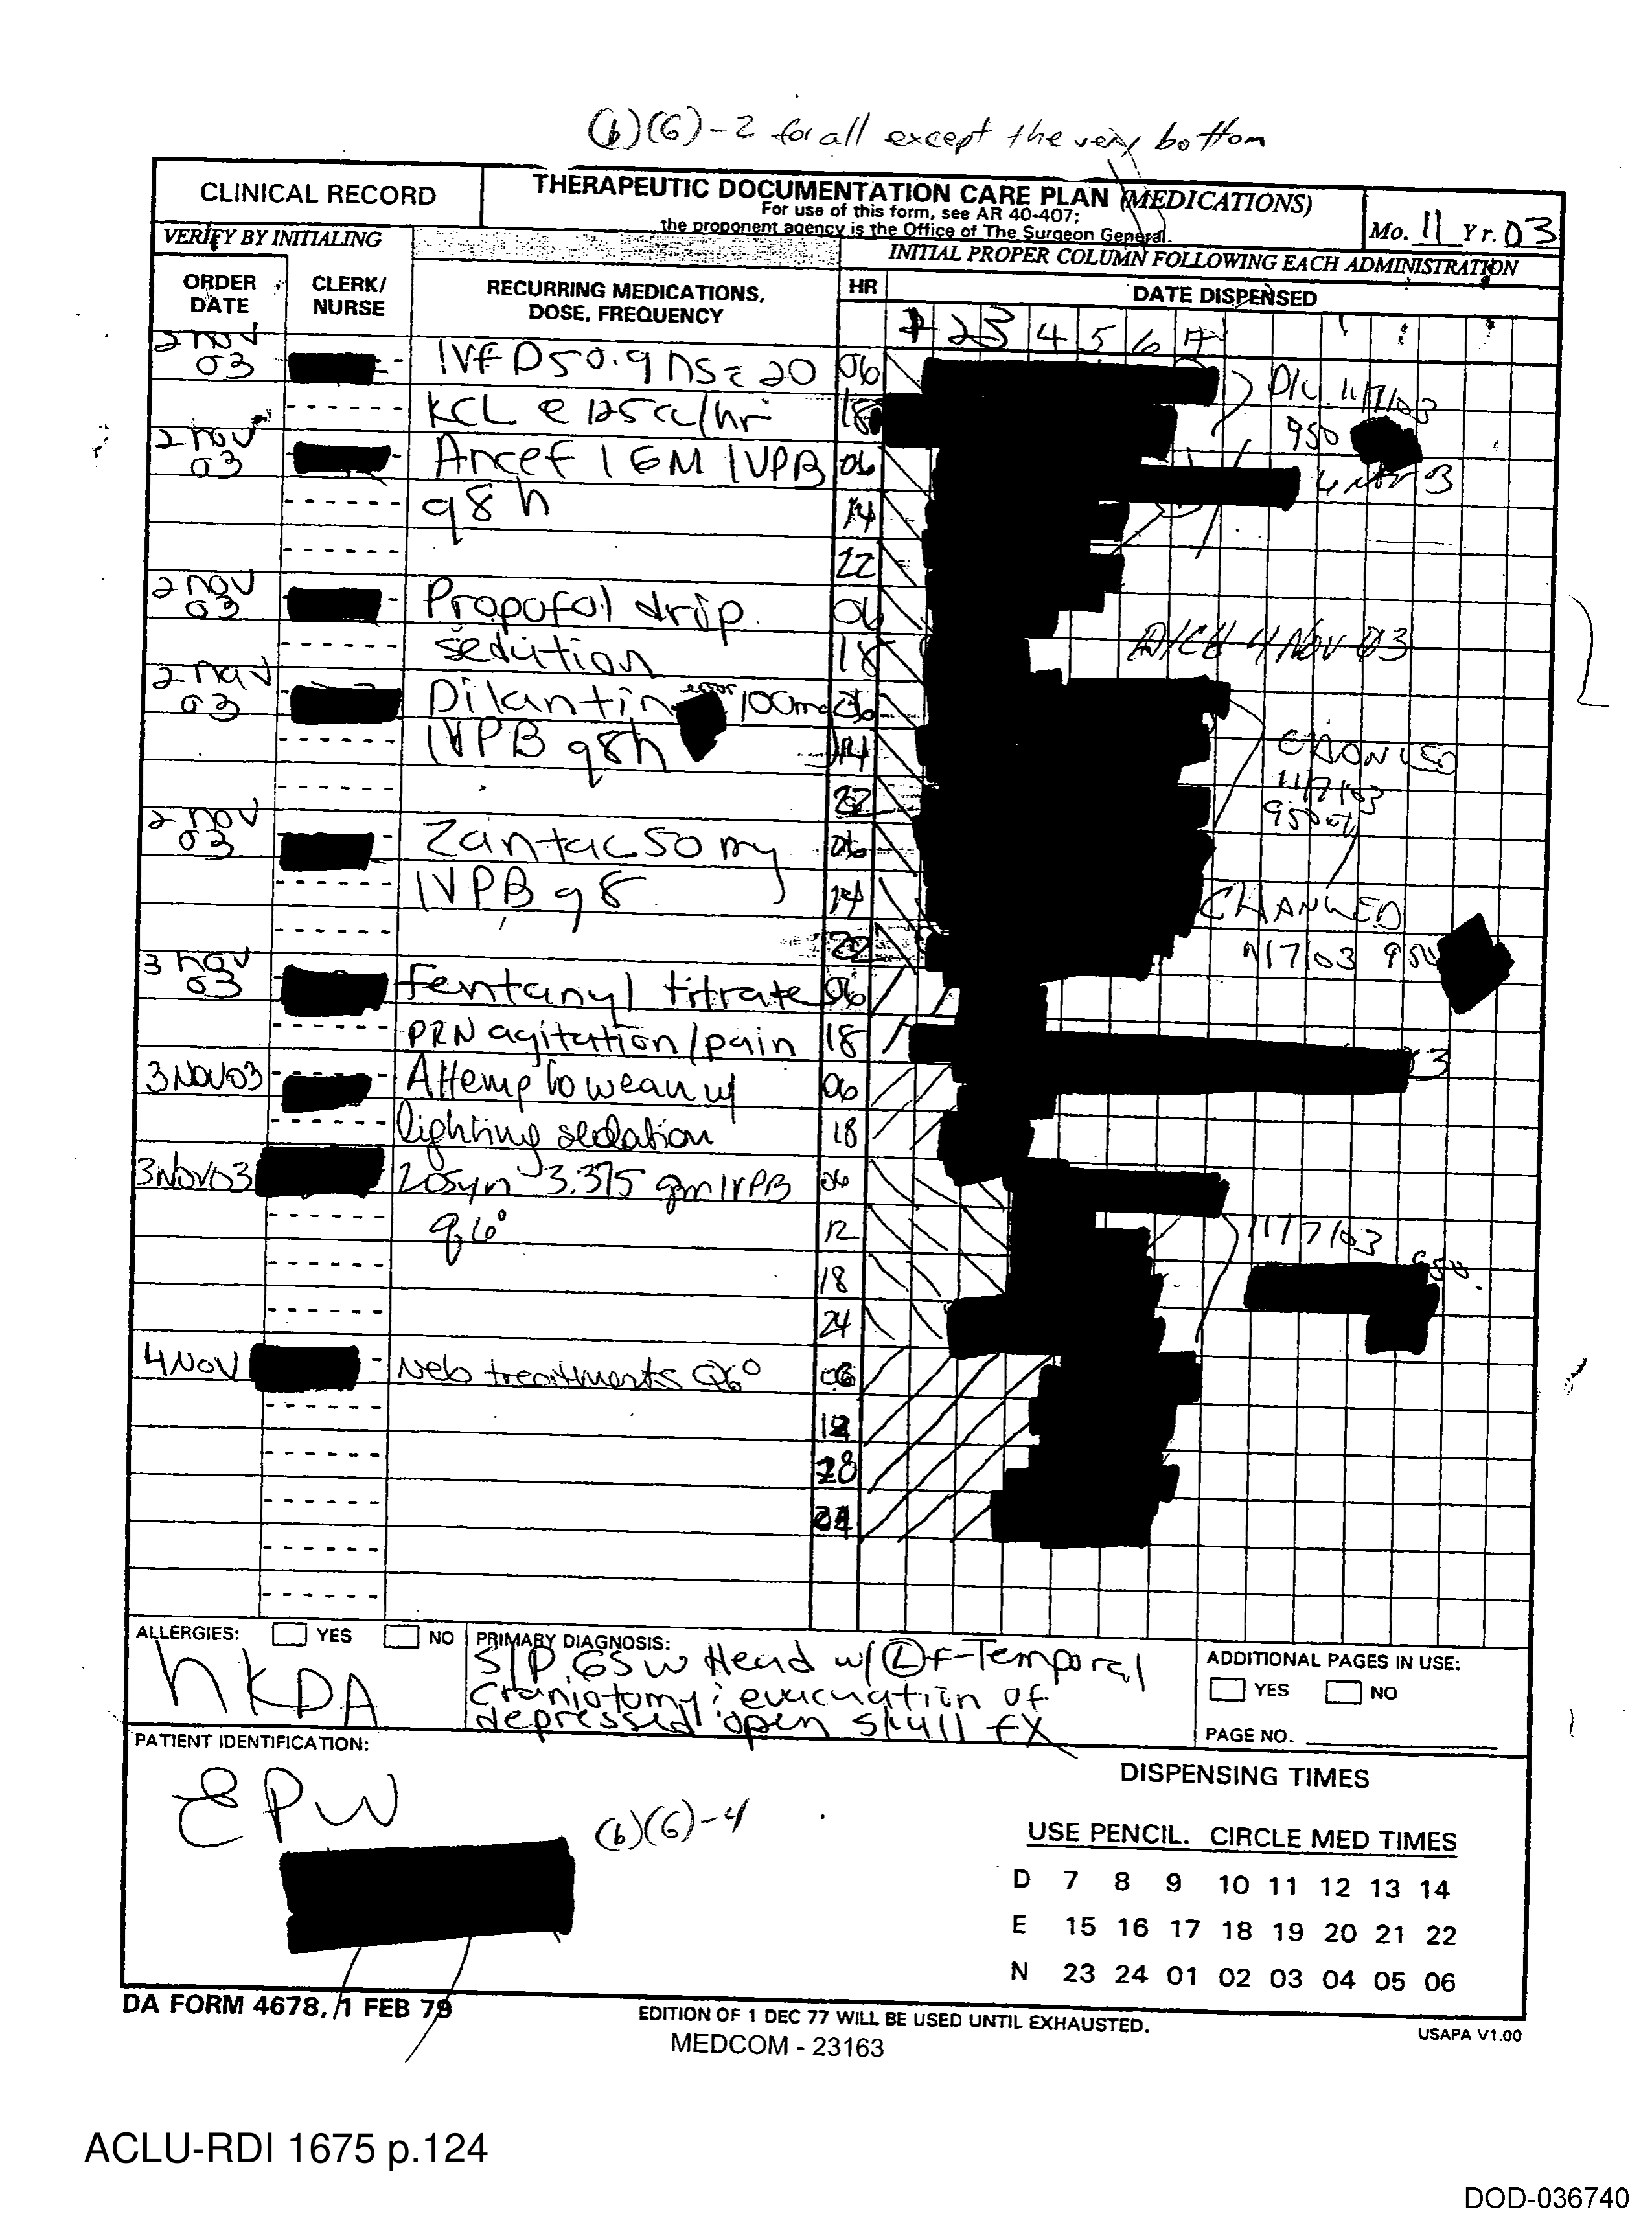 (b)(6)-2 for all except the very bottom
CLINICAL RECORD
THERAPEUTIC DOCUMENTATION CARE PLAN (MEDICATIONS)
For use of this form, see AR 40-407;
the proponent agency is the Office of The Surgeon General.
Mo. 11 Yr. 03
VERIFY BY INITIALING
INITIAL PROPER COLUMN FOLLOWING EACH ADMINISTRATION
ORDER DATE
CLERK/ NURSE
RECURRING MEDICATIONS, DOSE, FREQUENCY
HR
DATE DISPENSED
1 2 3 4 5 6 7
2 nov 03 IVF D50.9 ns c̄ 20 06
KCL @ 125cc/hr 18
D/C 11/7/03
950
2 nov 03 Ancef 1 GM IVPB 06
4 Nov 03
q8h 14
22
2 nov 03 Propofol drip 06
sedution 18
D/Cd 4 Nov 03
2 nov 03 Dilantin error 100mg 06
IVPB q8h 14
22
11/7/03
950
2 nov 03 Zantac 50 mg 06
IVPB q8 14
22
CHANGED
11/7/03 950
3 nov 03 Fentanyl titrate 06
PRN agitation/pain 18
3
3 NOV 03 Attemp to wean w/ 06
lighting sedation 18
3 Nov 03 Zosyn 3.375 gm IVPB 06
q6° 12
18
24
11/7/03
950
4 Nov Neb treatments Q6° 06
12
18
24
ALLERGIES: YES NO
NKDA
PRIMARY DIAGNOSIS:
S/P GSW Head w/ Ⓛ F-Temporal
Craniotomy; evacuation of
depressed open skull fx
ADDITIONAL PAGES IN USE:
YES NO
PAGE NO.
PATIENT IDENTIFICATION:
EPW
(b)(6)-4
DISPENSING TIMES
USE PENCIL. CIRCLE MED TIMES
D 7 8 9 10 11 12 13 14
E 15 16 17 18 19 20 21 22
N 23 24 01 02 03 04 05 06
DA FORM 4678, 1 FEB 79
EDITION OF 1 DEC 77 WILL BE USED UNTIL EXHAUSTED.
USAPA V1.00
MEDCOM - 23163
ACLU-RDI 1675 p.124
DOD-036740